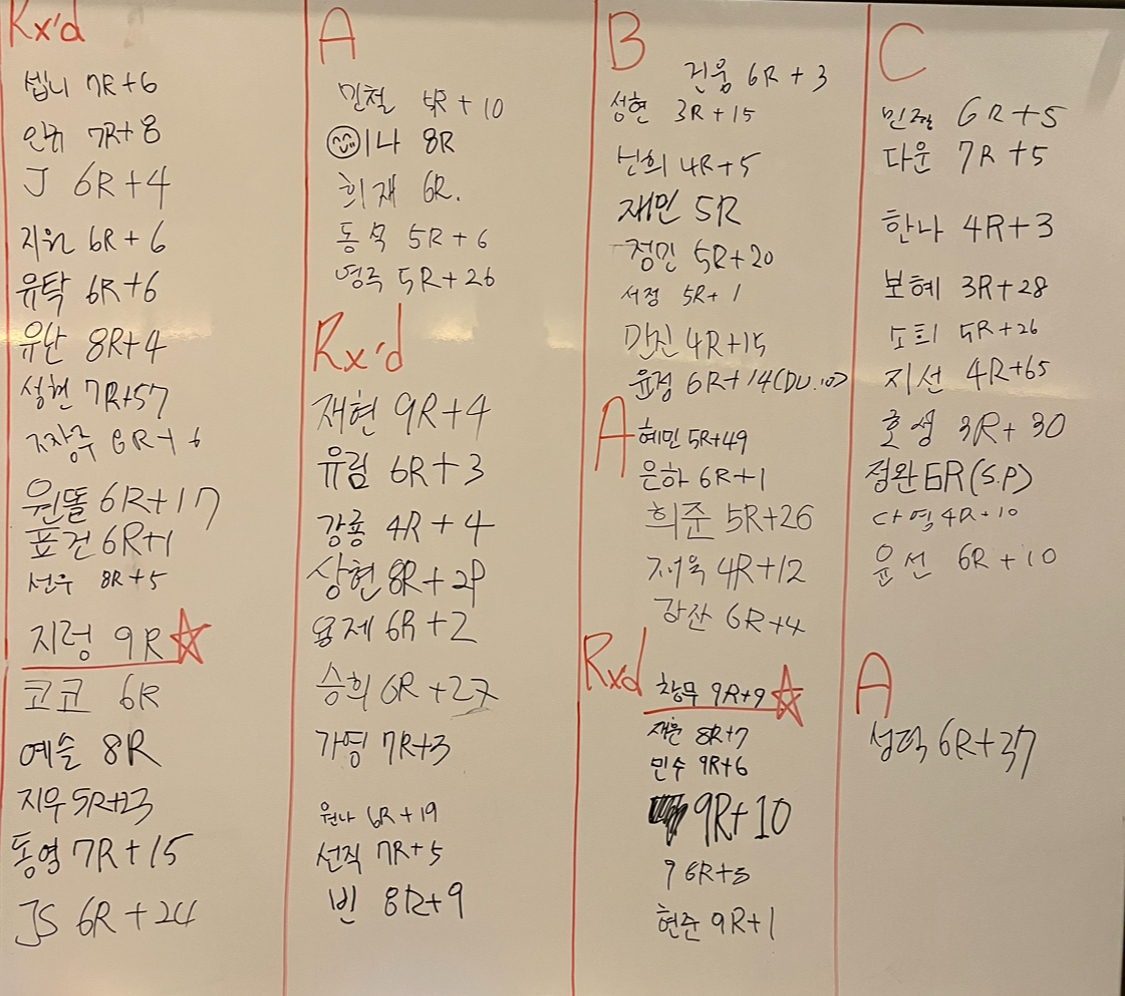 Rx'd
셉니 7R+6
인뉘 7R+8
J 6R+4
지원 6R+6
유탁 6R+6
유난 8R+4
성현 7R+57
6R+6
원똘 6R+17
표건 6R+1
선우 8R+5
지렁 9R
코코 6R
예슬 8R
지우 5R+23
동영 7R+15
JS 6R+24
A
민철 5R+10
이나 8R
희재 6R.
동욱 5R+6
영주 5R+26
Rx'd
재현 9R+4
유림 6R+3
강룡 4R+4
상현 8R+29
용제 6R+2
승희 6R+27
가영 7R+3
원나 6R+19
선직 7R+5
빈 8R+9
B
건웅 6R+3
성현 3R+15
4R+5
재민 5R
정민 5R+20
서정 5R+1
민진 4R+15
윤정 6R+14(DU.10)
A
혜민 5R+49
은하 6R+1
희준 5R+26
4R+12
강산 6R+4
Rxd
창무 9R+9
재윤 8R+7
민수 9R+6
9R+10
6R+3
현준 9R+1
C
6R+5
다운 7R+5
한나 4R+3
보혜 3R+28
5R+26
지선 4R+65
호성 3R+30
정완 6R(S.P)
다영 4R+10
윤선 6R+10
A
성덕 6R+37